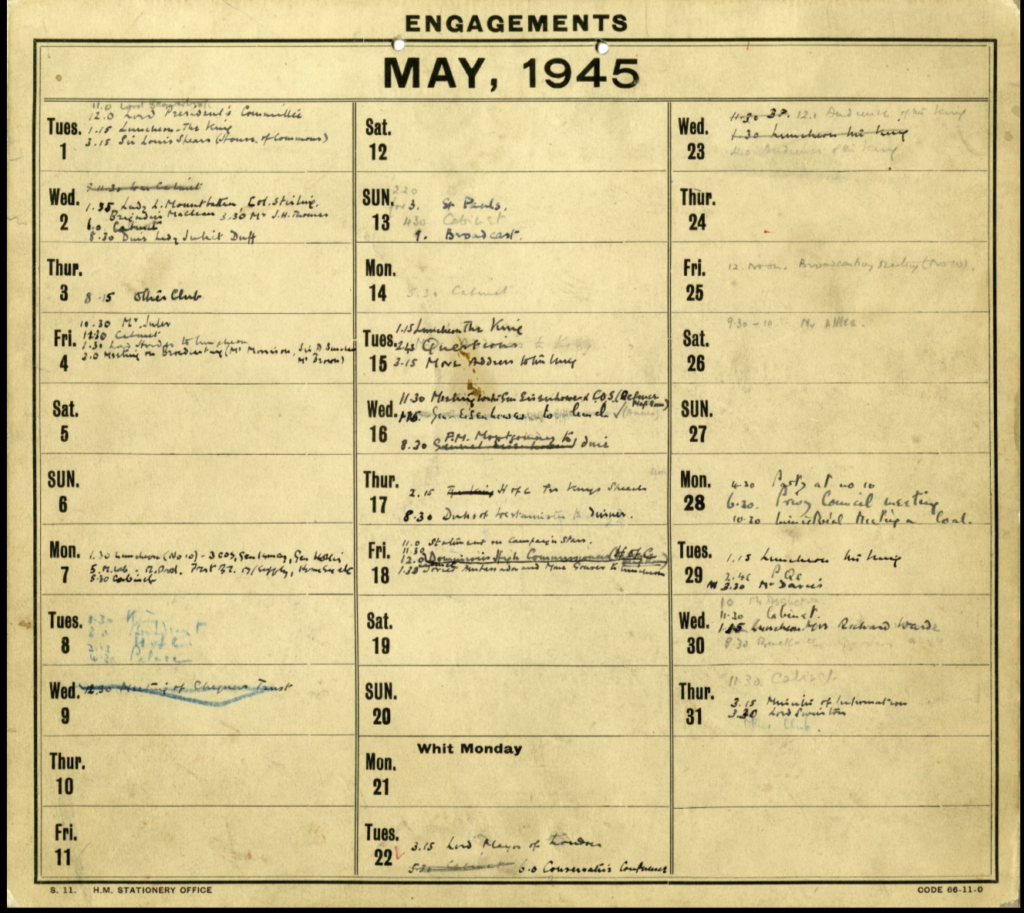 ENGAGEMENTS
MAY, 1945
Tues. 1
11.0 Lord Beaverbrook
12.0 Lord President's Committee
1.15 Luncheon - The King
3.15 Sir Louis Spears (House of Commons)
Wed. 2
11.30 War Cabinet
1.35 Lady L. Mountbatten, Col. Stirling,
Brigadier Maclean 3.30 Mr J.H. Thomas
6.0 Cabinet
8.30 Dine Lady Juliet Duff
Thur. 3
8.15 Other Club
Fri. 4
10.30 Mr
Cabinet
1.30 Lord to luncheon
3.0 Meeting on Broadcasting (Mr Morrison,
Mr Brown)
Sat. 5
SUN. 6
Mon. 7
1.30 Luncheon (No 10) - 3 COS, Gen Ismay, Gen Hollis
5.30 Cabinet
Tues. 8
1.30
4.30 Palace
Wed. 9
12.30 Meeting of Chequers Trust
Thur. 10
Fri. 11
Sat. 12
SUN. 13
3. St Pauls.
4.30 Cabinet
9. Broadcast.
Mon. 14
5.30 Cabinet
Tues. 15
1.15 Luncheon The King
2.45 Questions
3.15 Move Address to the King
Wed. 16
11.30 Meeting with Gen Eisenhower & C.O.S. (Defence Map Room)
1.15 Gen Eisenhower to lunch
8.30 F.M. Montgomery to dine
Thur. 17
2.15 H of C The Kings Speech
8.30 Duke of Westminster to Dinner.
Fri. 18
11.0 Statement on Campaign Stars.
12.0 Dominions High Commissioners (H of C)
1.30 Soviet Ambassador and Mme Gousev to luncheon
Sat. 19
SUN. 20
Whit Monday
Mon. 21
Tues. 22
3.15 Lord Mayor of London
5.30 Cabinet 6.0 Conservative Conference
Wed. 23
11.30 12.0 Audience of the King
1.30 Luncheon the King
4.0 Audience of the King
Thur. 24
Fri. 25
12. Noon. Broadcasting Meeting (No 10).
Sat. 26
9.30 - 10 Mr Attlee.
SUN. 27
Mon. 28
4.30 Party at no 10
6.30. Privy Council meeting
10.30 Ministerial Meeting on Coal.
Tues. 29
1.15 Luncheon the King
2.45 P Qs
3.30 Mr Davies
Wed. 30
10
11.30 Cabinet
1.15 Luncheon Mrs Richard Warde
8.30
Thur. 31
11.30. Cabinet
3.15 Minister of Information
3.30 Lord Swinton
Other Club.
S. 11. H.M. STATIONERY OFFICE
CODE 66-11-0